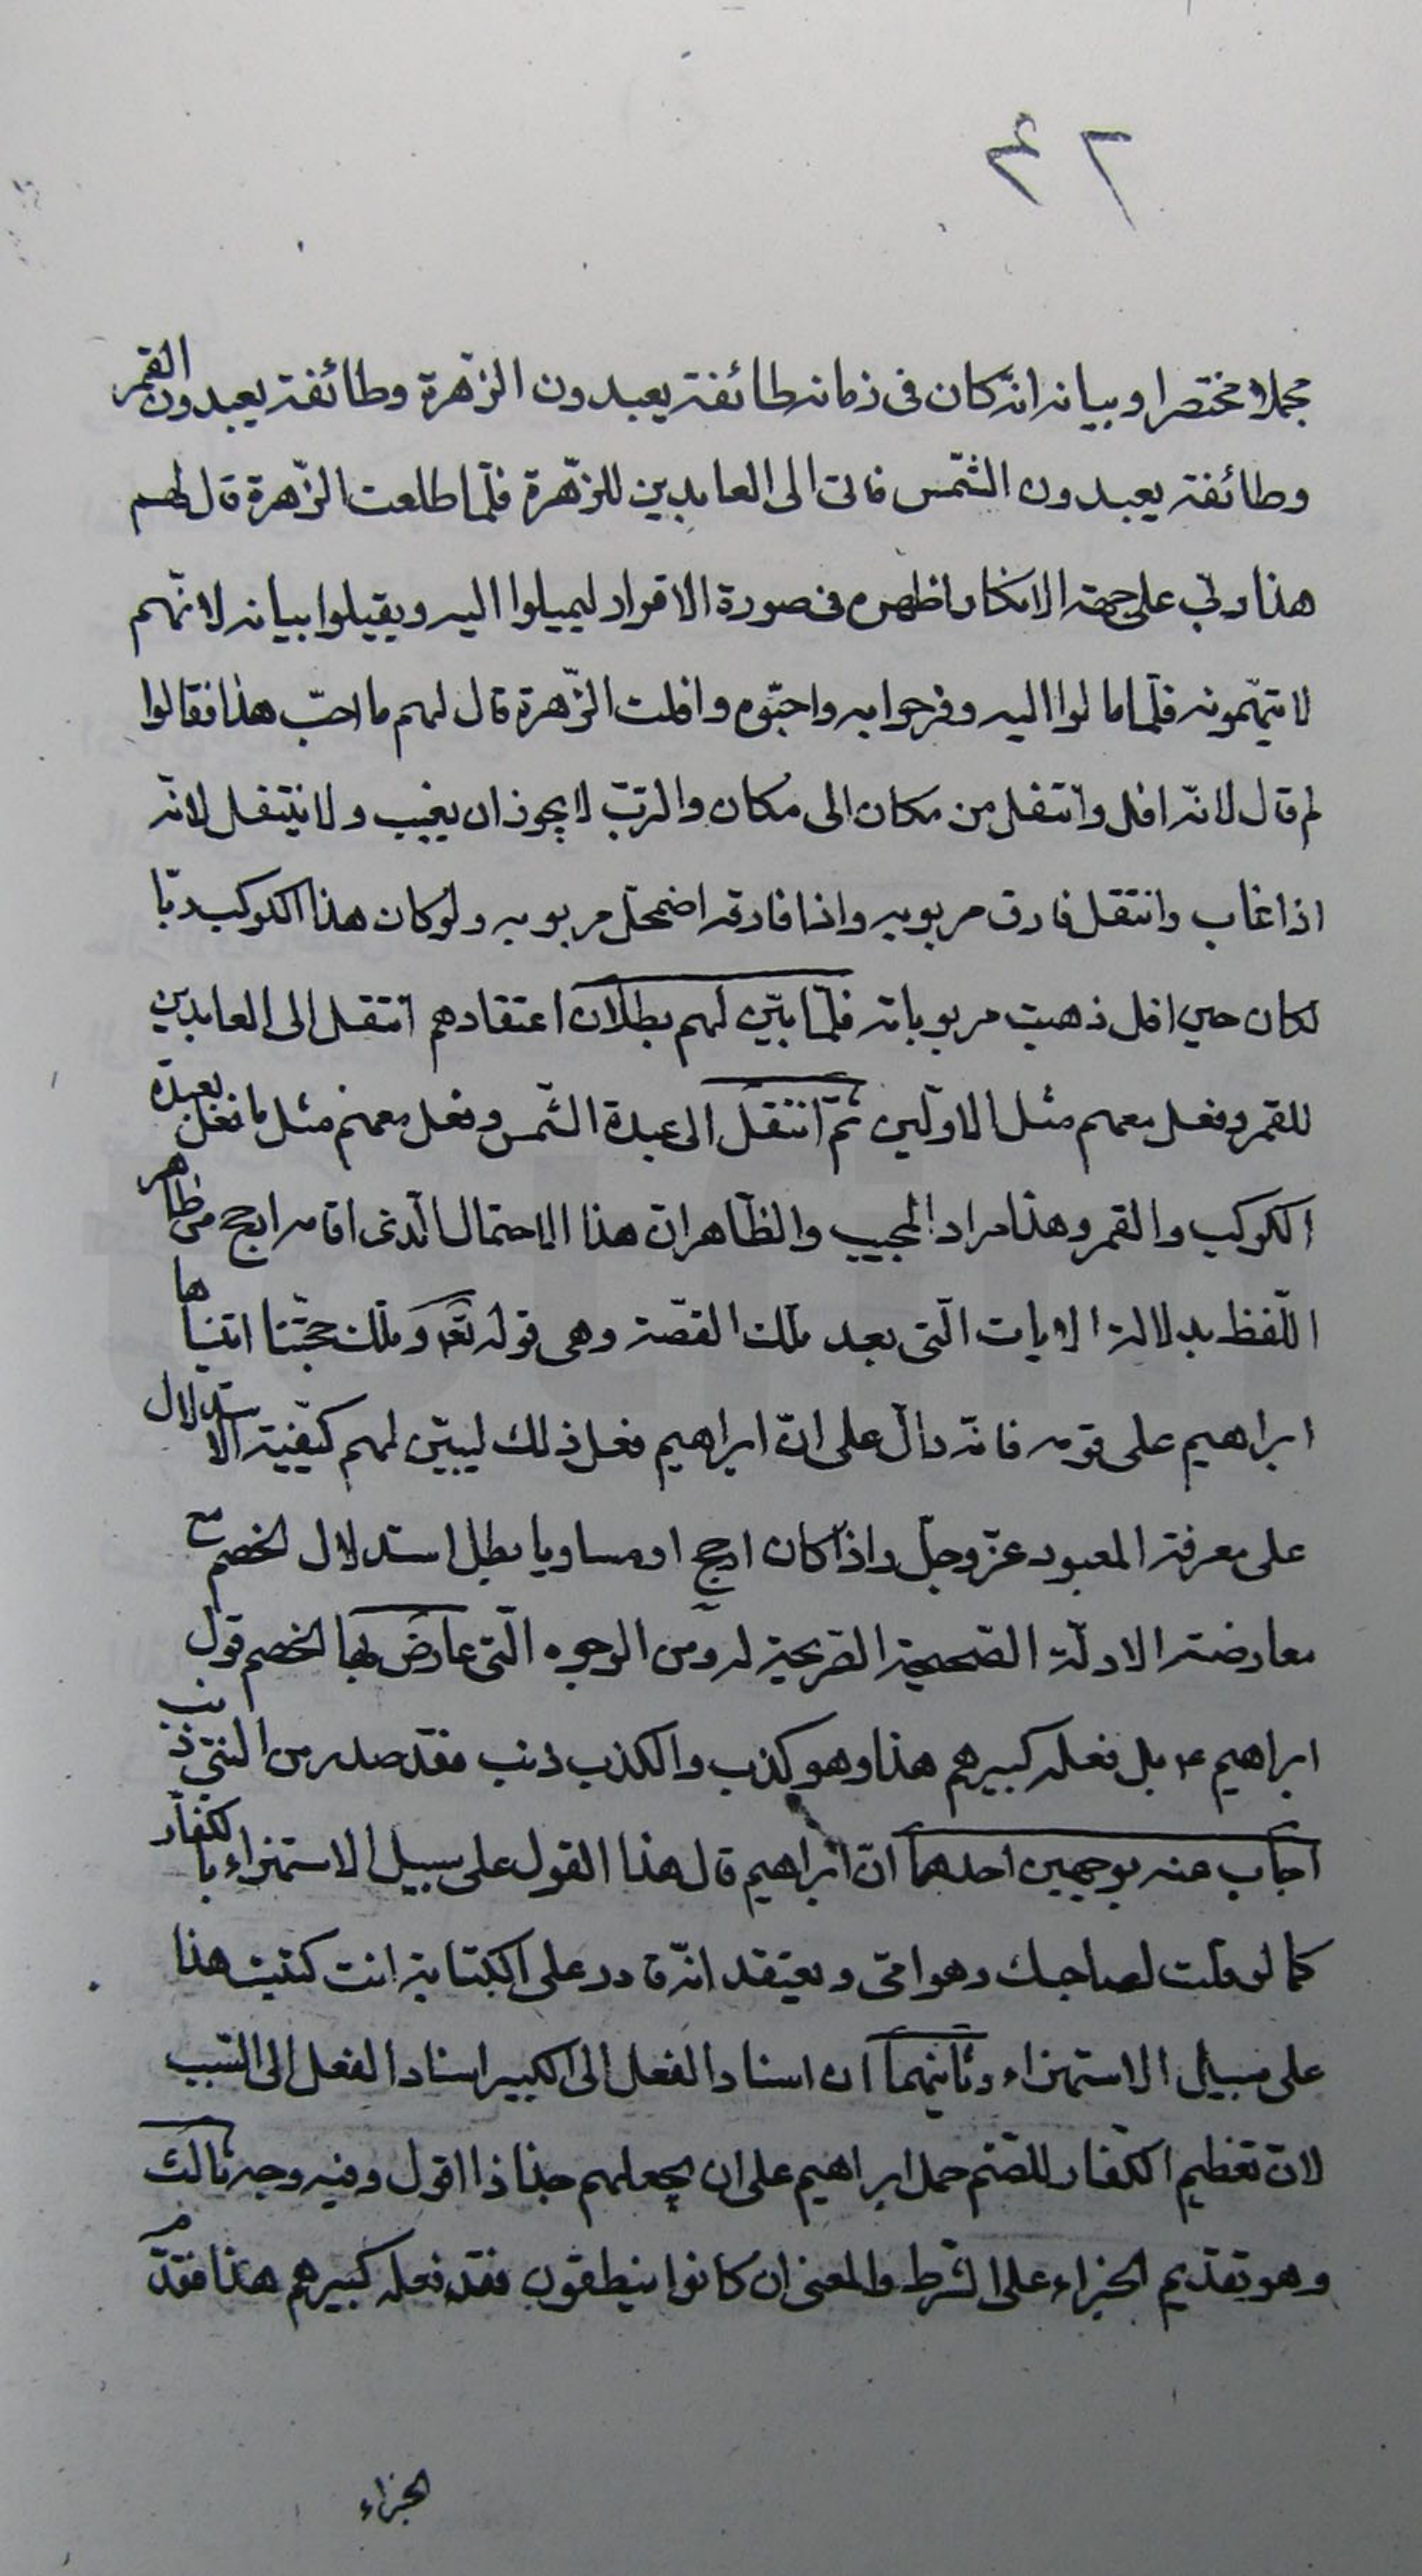 ٢٤
مجملا مختصرا وبيانه انه كان فى زمانه طائفة يعبدون الزّهرة وطائفة يعبدون القمر
وطائفة يعبدون الشّمس فاتى الى العابدين للزّهرة فلمّا طلعت الزّهرة قال لهم
هذا ربّى على جهة الانكار اظهره فى صورة الاقرار ليميلوا اليه ويقبلوا بيانه لانّهم
لا يتّهمونه فلمّا مالوا اليه وفرحوا به واحبّوه وافلت الزّهرة قال لهم ما احبّ هذا فقالوا
لم قال لانّه افل وانتقل من مكان الى مكان والربّ لا يجوز ان يغيب ولا ينتقل لانّه
اذا غاب وانتقل فارق مربوبه واذا فارقه اضمحّل مربوبه ولو كان هذا الكوكب ربّا
لكان حين افل ذهبت مربوباته فلمّا بيّن لهم بطلان اعتقادهم انتقل الى العابدين
للقمر وفعل معهم مثل الاوّلين ثمّ انتقل الى عبدة الشّمس وفعل معهم مثل ما فعل بعبدة
الكوكب والقمر وهذا مراد المجيب والظّاهر انّ هذا الاحتمال الّذى اقامه ارجح من ظاهر
اللّفظ بدلالة الايات الّتى بعد تلك القصّة وهى قوله تعه وتلك حجّتنا اتيناها
ابراهيم على قومه فانّه دالّ على انّ ابراهيم فعل ذلك ليبيّن لهم كيفيّة الاستدلال
على معرفة المعبود عزّ وجلّ واذا كان ارجح او مساويا بطل استدلال الخصم مع
معارضته الادلّة الصّحيحة الصّريحة له ومن الوجوه الّتى عارض بها الخصم قول
ابراهيم ع بل فعله كبيرهم هذا وهو كذب والكذب ذنب فقد صدر من النّبىّ ذنب
اجاب عنه بوجهين احدهما انّ ابراهيم قال هذا القول على سبيل الاستهزاء بالكفّار
كما لو قلت لصاحبك وهو امّى ويعتقد انّه قادر على الكتابة انت كتبت هذا
على سبيل الاستهزاء وثانيهما ان اسناد الفعل الى الكبير اسناد الفعل الى السّبب
لانّ تعظيم الكفّار للصّنم حمل ابراهيم على ان يجعلهم جذاذا اقول وفيه وجه ثالث
وهو تقديم الجزاء على الشّرط والمعنى ان كانوا ينطقون فقد فعله كبيرهم هذا فقدّم
الجزاء